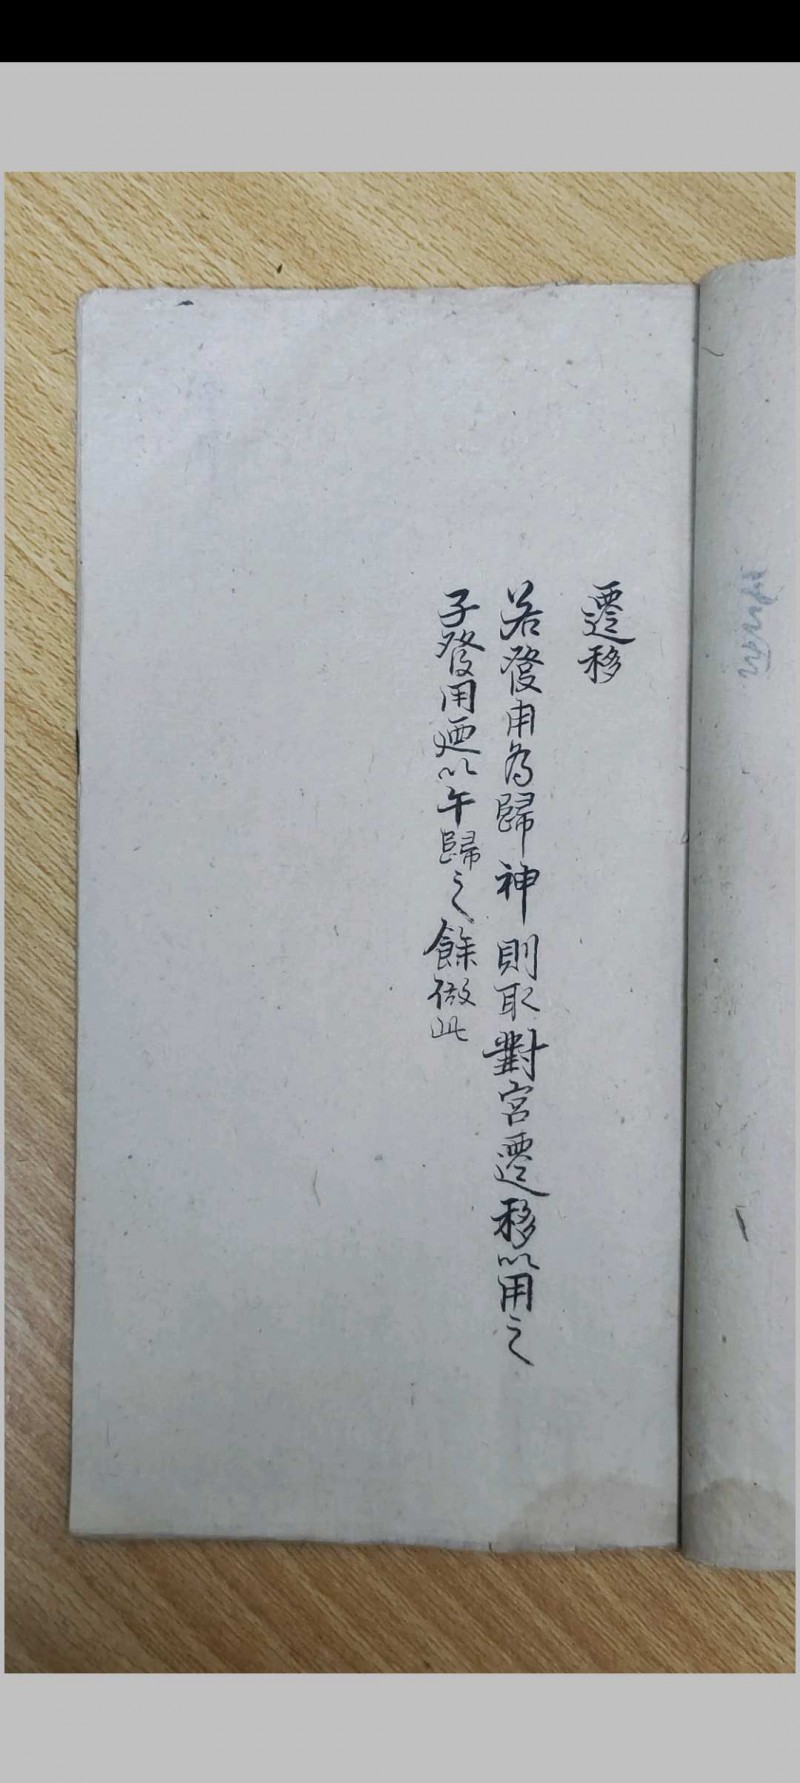 遷移
若發用為歸神則取對宮遷移以用之
子發用迺以午歸之餘倣此